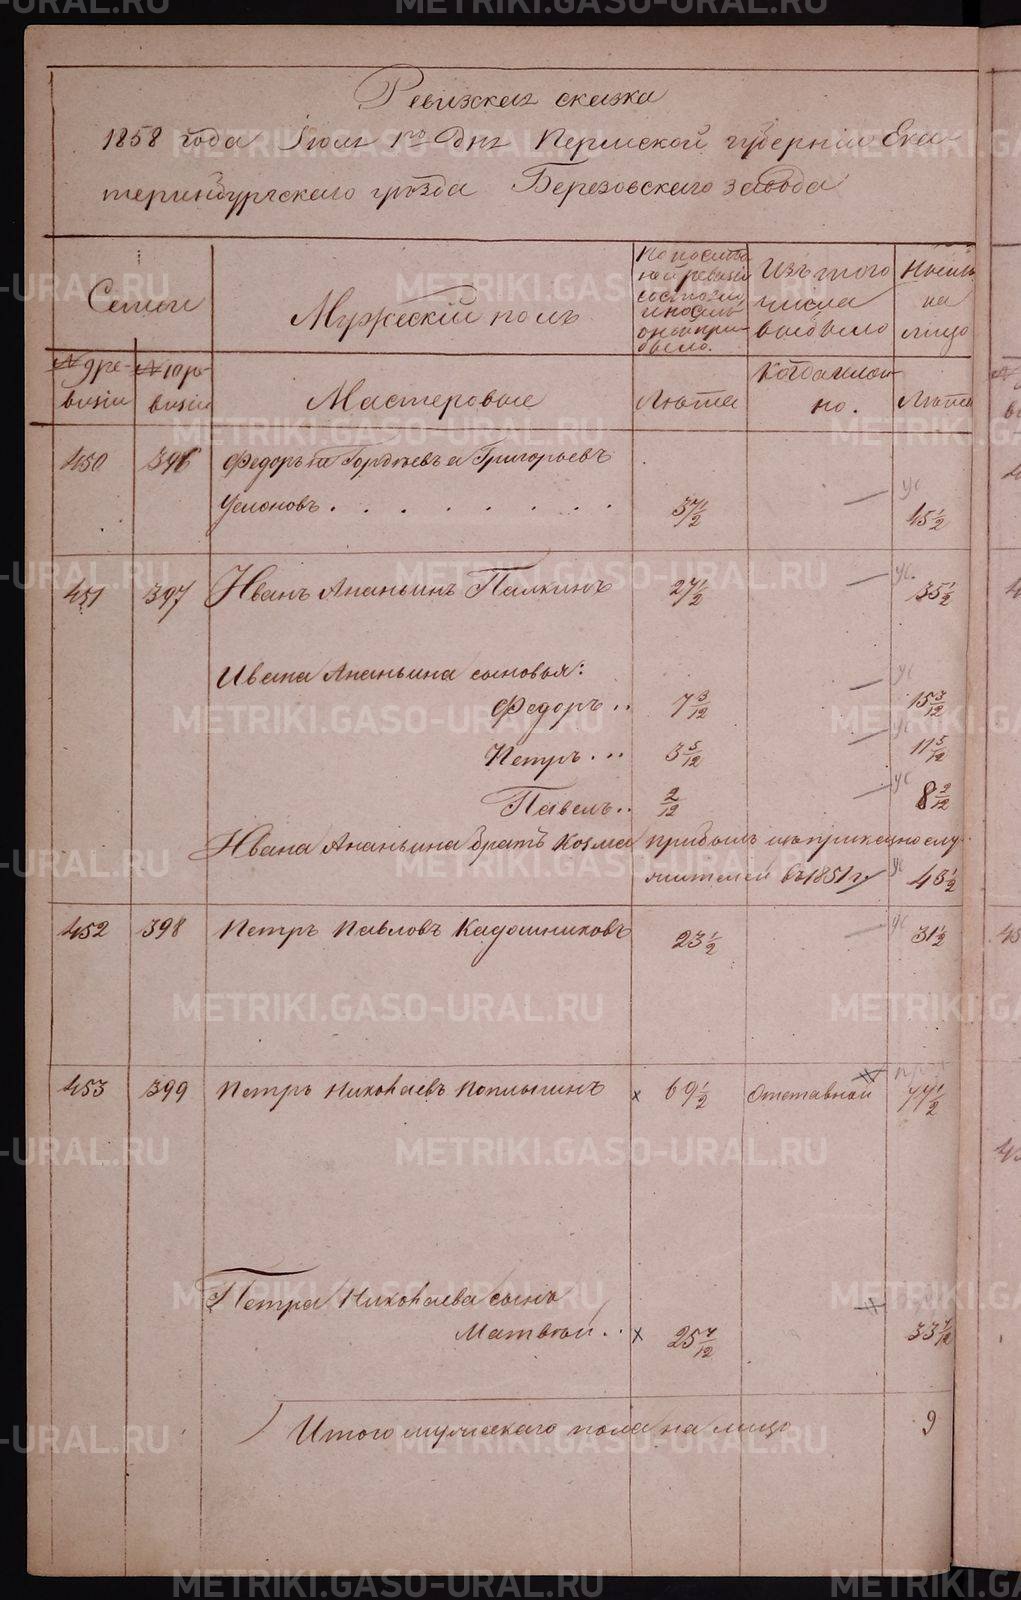 Ревизская сказка
1858 года Июля 1го дня Пермской губернiи Ека
теринбургскаго уезда Березовскаго завода
Семьи
Мужескiй полъ
По последней ревизiи состояло и после оной прибыло.
Изъ того числа выбыло
Ныне на лицо
№ 9 ревизiи
№ 10 ревизiи
Мастеровые
Лета
Когда именно.
Лета
450 396 Федоръ Гордеевъ а Григорьевъ
37 1/2 45 1/2
451 397 Иванъ Ананьинъ Палкинъ 27 1/2 35 1/2
Ивана Ананьина сыновья:
Федоръ .. 7 3/12 15 3/12
Петръ ... 3 5/12 11 5/12
Павелъ .. 2/12 8 2/12
Ивана Ананьина братъ Козма прибылъ изъ
жителей въ 1851 г. 43 1/2
452 398 Петръ Павловъ Кадошниковъ 23 1/2 31 1/2
453 399 Петръ Николаевъ Коплыгинъ х 69 1/2 Отставной 77 1/2
Петра Николаева сынъ
Матвей .. х 25 7/12 33 7/12
Итого мужескаго пола на лицо 9
METRIKI.GASO-URAL.RU